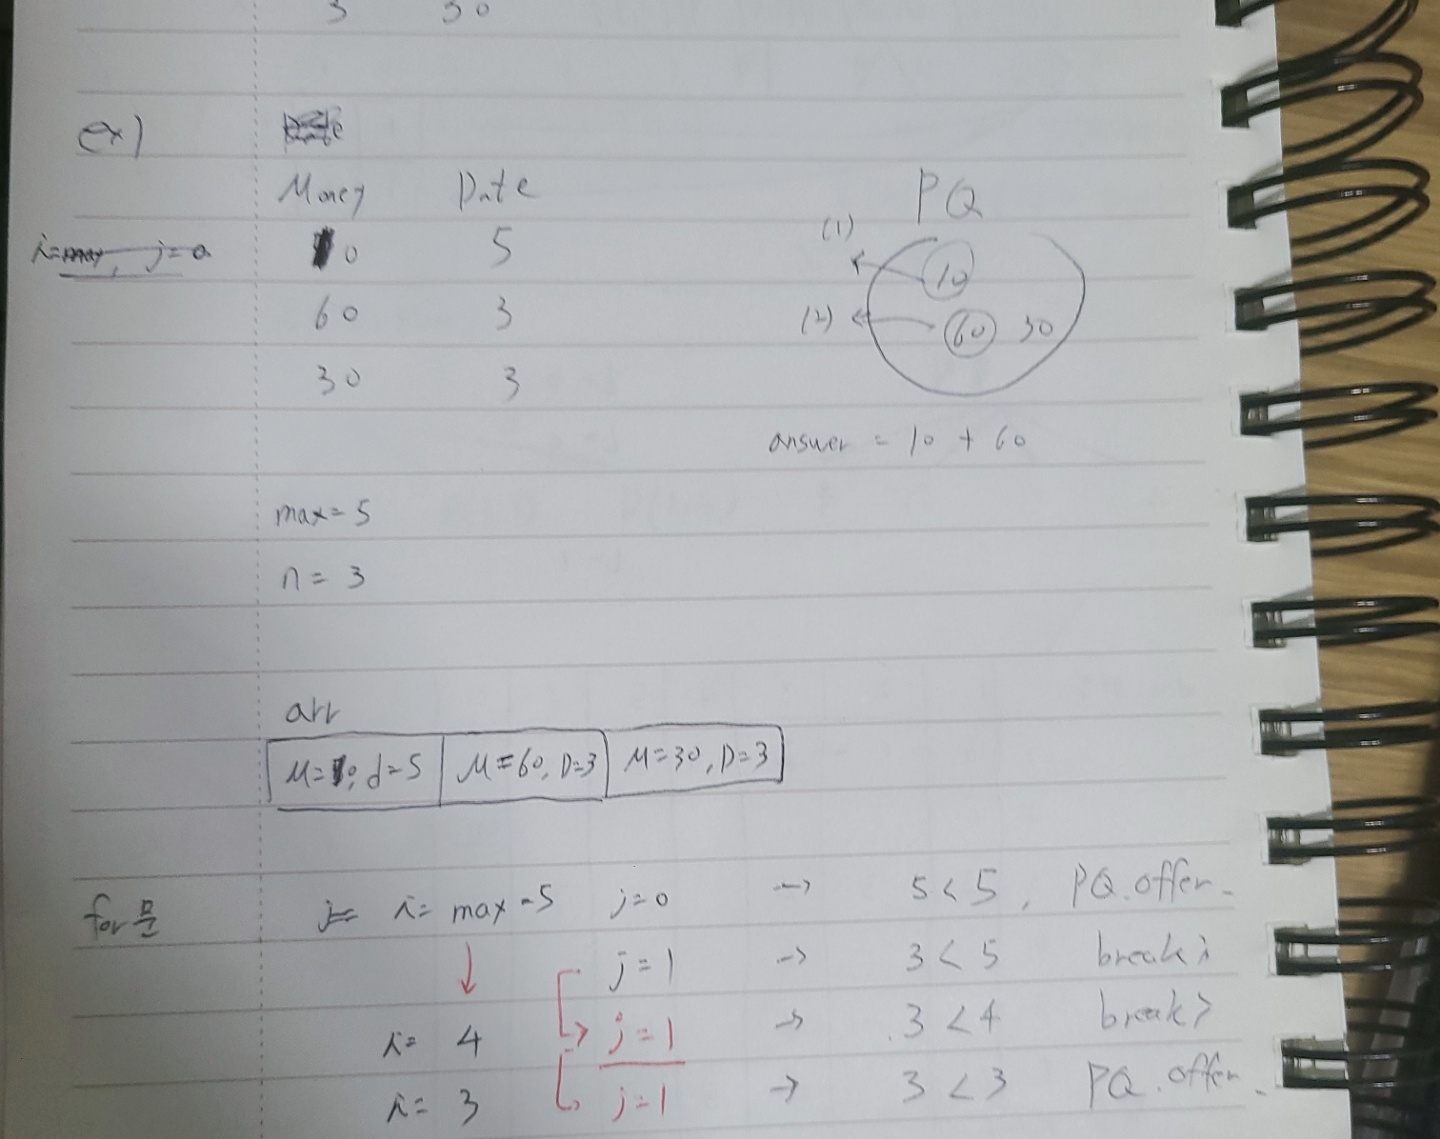 3 30
ex)
Money Date PQ
i=max, j=0 10 5 (1) 10
60 3 (2) 60 30
30 3
answer = 10 + 60
max=5
n = 3
arr
M=10, d=5 M=60, D=3 M=30, D=3
for문 i= max=5 j=0 → 5<5, PQ.offer
j=1 → 3<5 break;
i= 4 j=1 → 3<4 break;
i= 3 j=1 → 3<3 PQ.offer